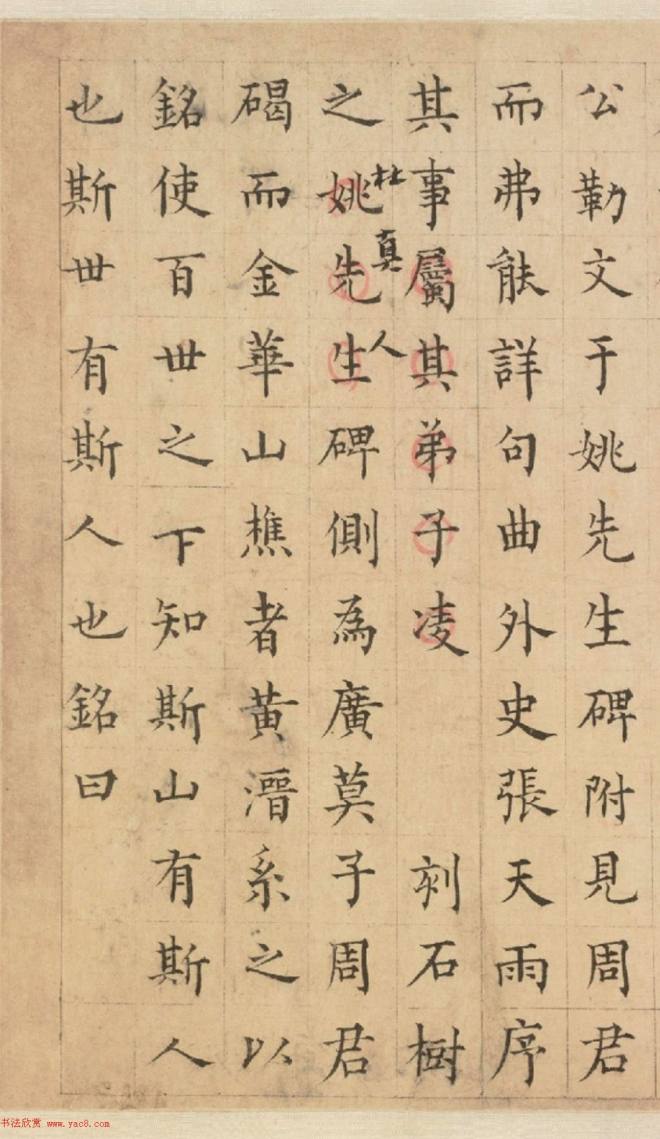 公勒文于姚先生碑附見周君
而弗能詳句曲外史張天雨序
其事屬其弟子凌 刻石樹
杜真人
之姚先生碑側為廣莫子周君
碣而金華山樵者黃溍系之以
銘使百世之下知斯山有斯人
也斯世有斯人也銘曰
书法欣赏 www.yac8.com